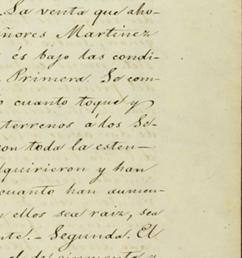 La venta que aho-
ñores Martinez
és bajo las condi-
Primera. Se com-
o cuanto toque y
terrenos á los Se-
con toda la esten-
dquirieron y han
cuanto han aumen-
n ellos sea raiz, sea
nte. - Segunda. El